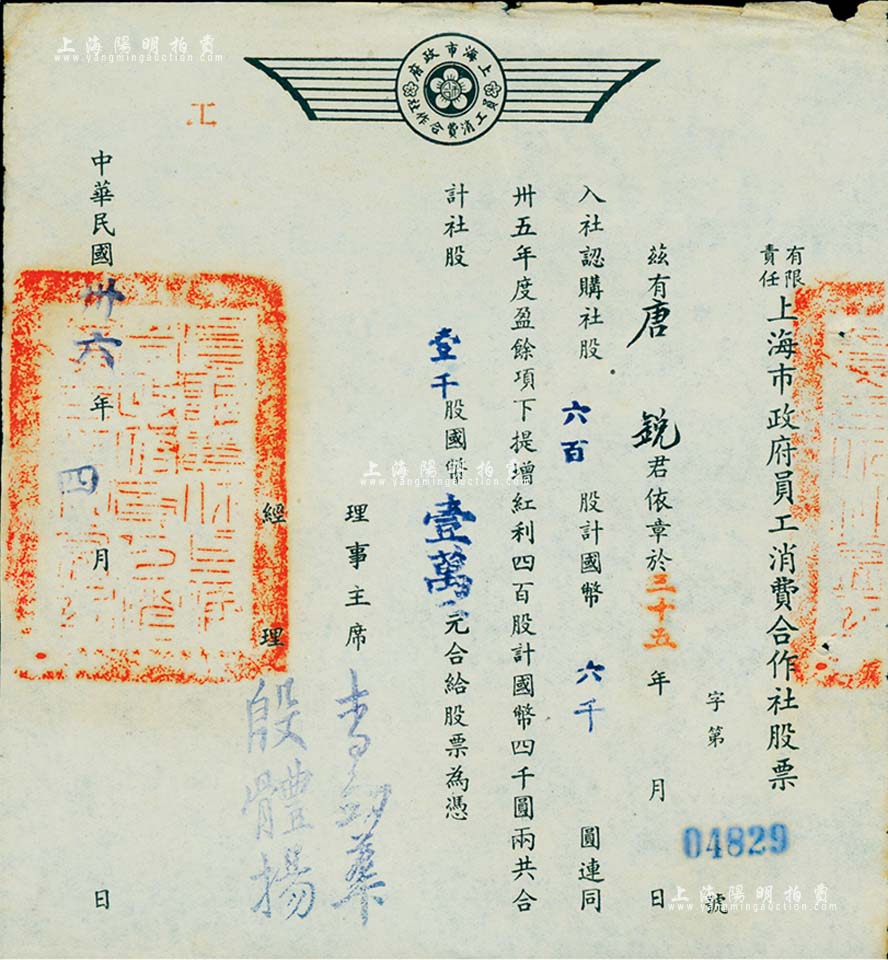 上海市政府
員工消費合作社
有限責任上海市政府員工消費合作社股票
字第04829號
茲有唐銳君依章於三十五年 月 日
入社認購社股六百股計國幣六千圓連同
卅五年度盈餘項下提增紅利四百股計國幣四千圓兩共合
計社股壹千股國幣壹萬元合給股票為憑
理事主席
經理 殷體揚
中華民國卅六年四月 日
工
上海陽明拍賣
www.yangmingauction.com
上海陽明拍賣
www.yangmingauction.com
上海陽明拍賣
www.yangmingauction.com